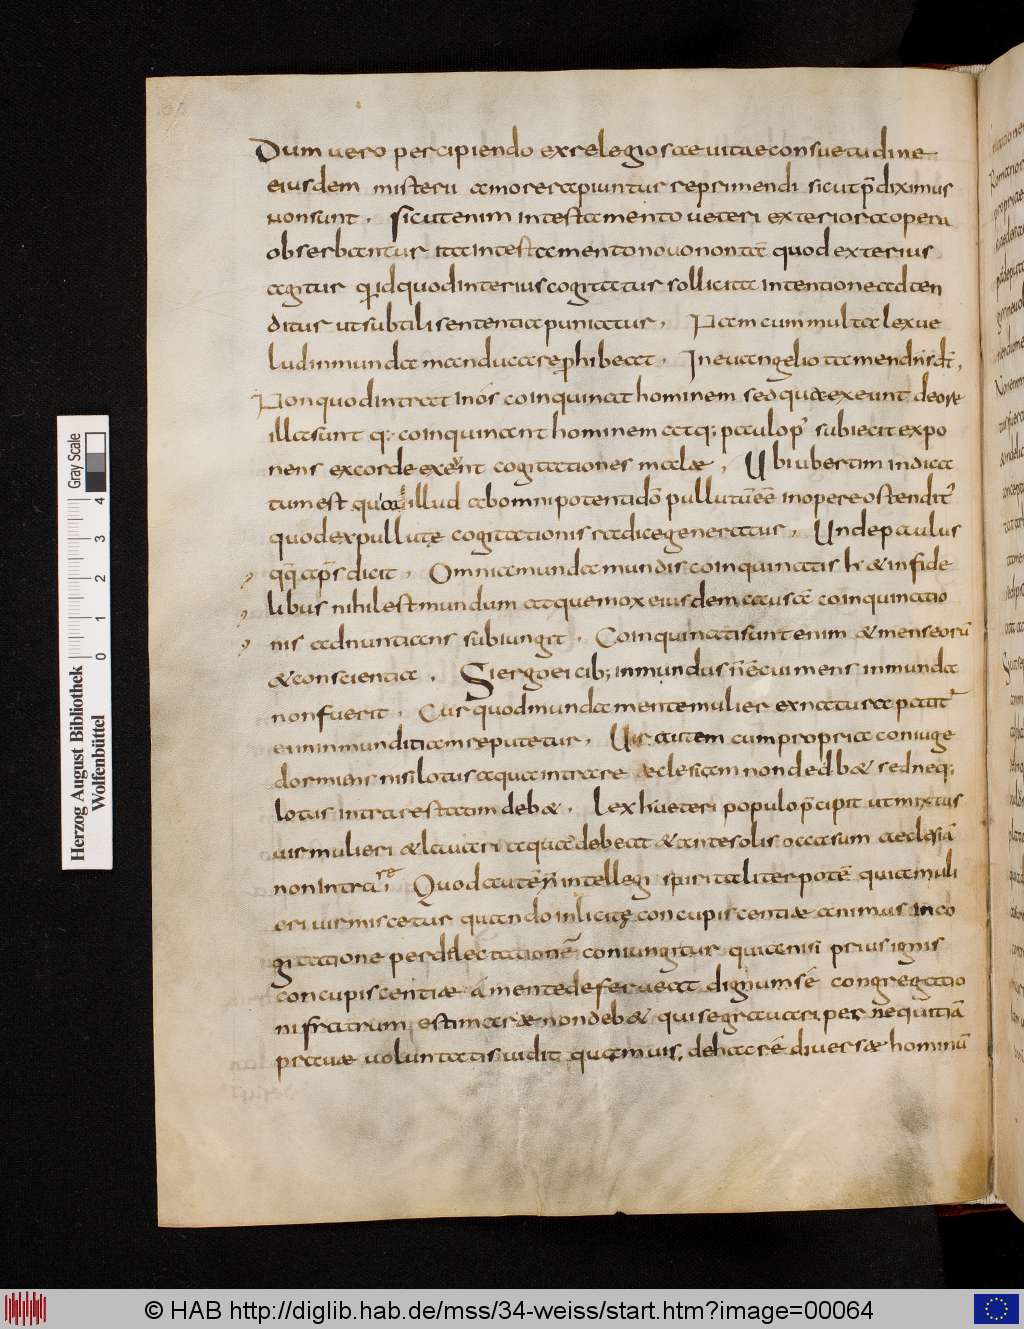 Dum uero percipiendo exrelegiosae uitae consuetudine
eiusdem misterii amore rapiuntur reprimendi sicut p̄diximus
non sunt. Sicut enim intestamento ueteri exteriora opera
obserbantur ita intestamento nouo non tā quod exterius
agitur quid quod interius cogitatur sollicita intentione adten
ditur ut subtili sententia puniatur. Nam cum multa lex ue
lud inmunda manducare phibeat. In euangelio tamen dn̄s dt̄,
Non quod intrat in ós coinquinat hominem sed quae exeunt de ore
illa sunt q: coinquinant hominem atq: paulo p' subiecit expo
nens ex corde exeunt cogitationes malae, Ubi ubertim indica
tum est quia illud ab omnipotenti dō pullutū eē in opere ostendit'
quod ex pullutę cogitationis radice generatur, Unde paulus
qq̄ aps̄ dicit. Omnia munda mundis coinquinatis h & infide
libus nihil est mundum atque mox eiusdem causā coinquinatio
nis adnuntians subiungit. Coinquinati sunt enim & mens eorū
& conscientia. Si ergo ei cib; inmundus n̄ ē cui mens inmunda
non fuerit. Cur quod munda mente mulier ex natura patit'
ei in inmunditiam reputetur, Uir autem cum propria coniuge
dormiens nisi lotus aqua intrare aeclesiam non ded b& sed neq;
lotus intrare statim deb&. Lex h ueteri populo p̄cipit ut mixtus
uir mulieri & lauari aquā debeat & ante solis occasum aeclesiā
non intrare. Quod autē n̄ intellegi spiritaliter potē quia muli
eri uir miscetur quando inlicitę concupiscentiae animus in co
gitatione per dilectationē coniungitur quia nisi prius ignis
concupiscentiae a mente deferueat dignum sé congregatio
ni fratrum estimare non deb& qui se grauari per nequitiā
prauae uoluntatis uidit quamuis; de hac ré diuersae hominū
Gray Scale
0 1 2 3 4
Herzog August Bibliothek
Wolfenbüttel
© HAB http://diglib.hab.de/mss/34-weiss/start.htm?image=00064